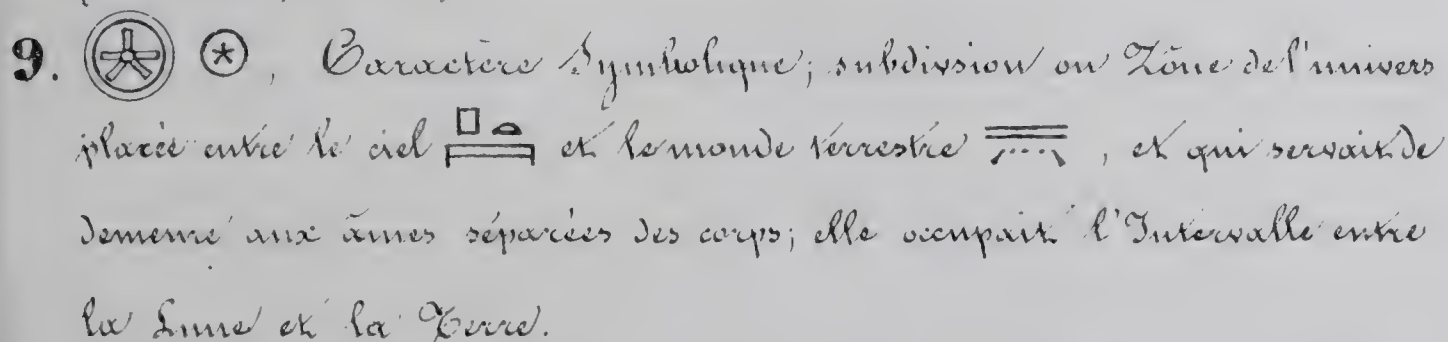 9. 𓇽 𓇼, Caractère Symbolique; subdivsion ou Zône de l'univers
placée entre le ciel 𓊪𓏏𓇯 et le monde terrestre, et qui servait de
demeure aux âmes séparées des corps; elle occupait l'Intervalle entre
la Lune et la Terre.